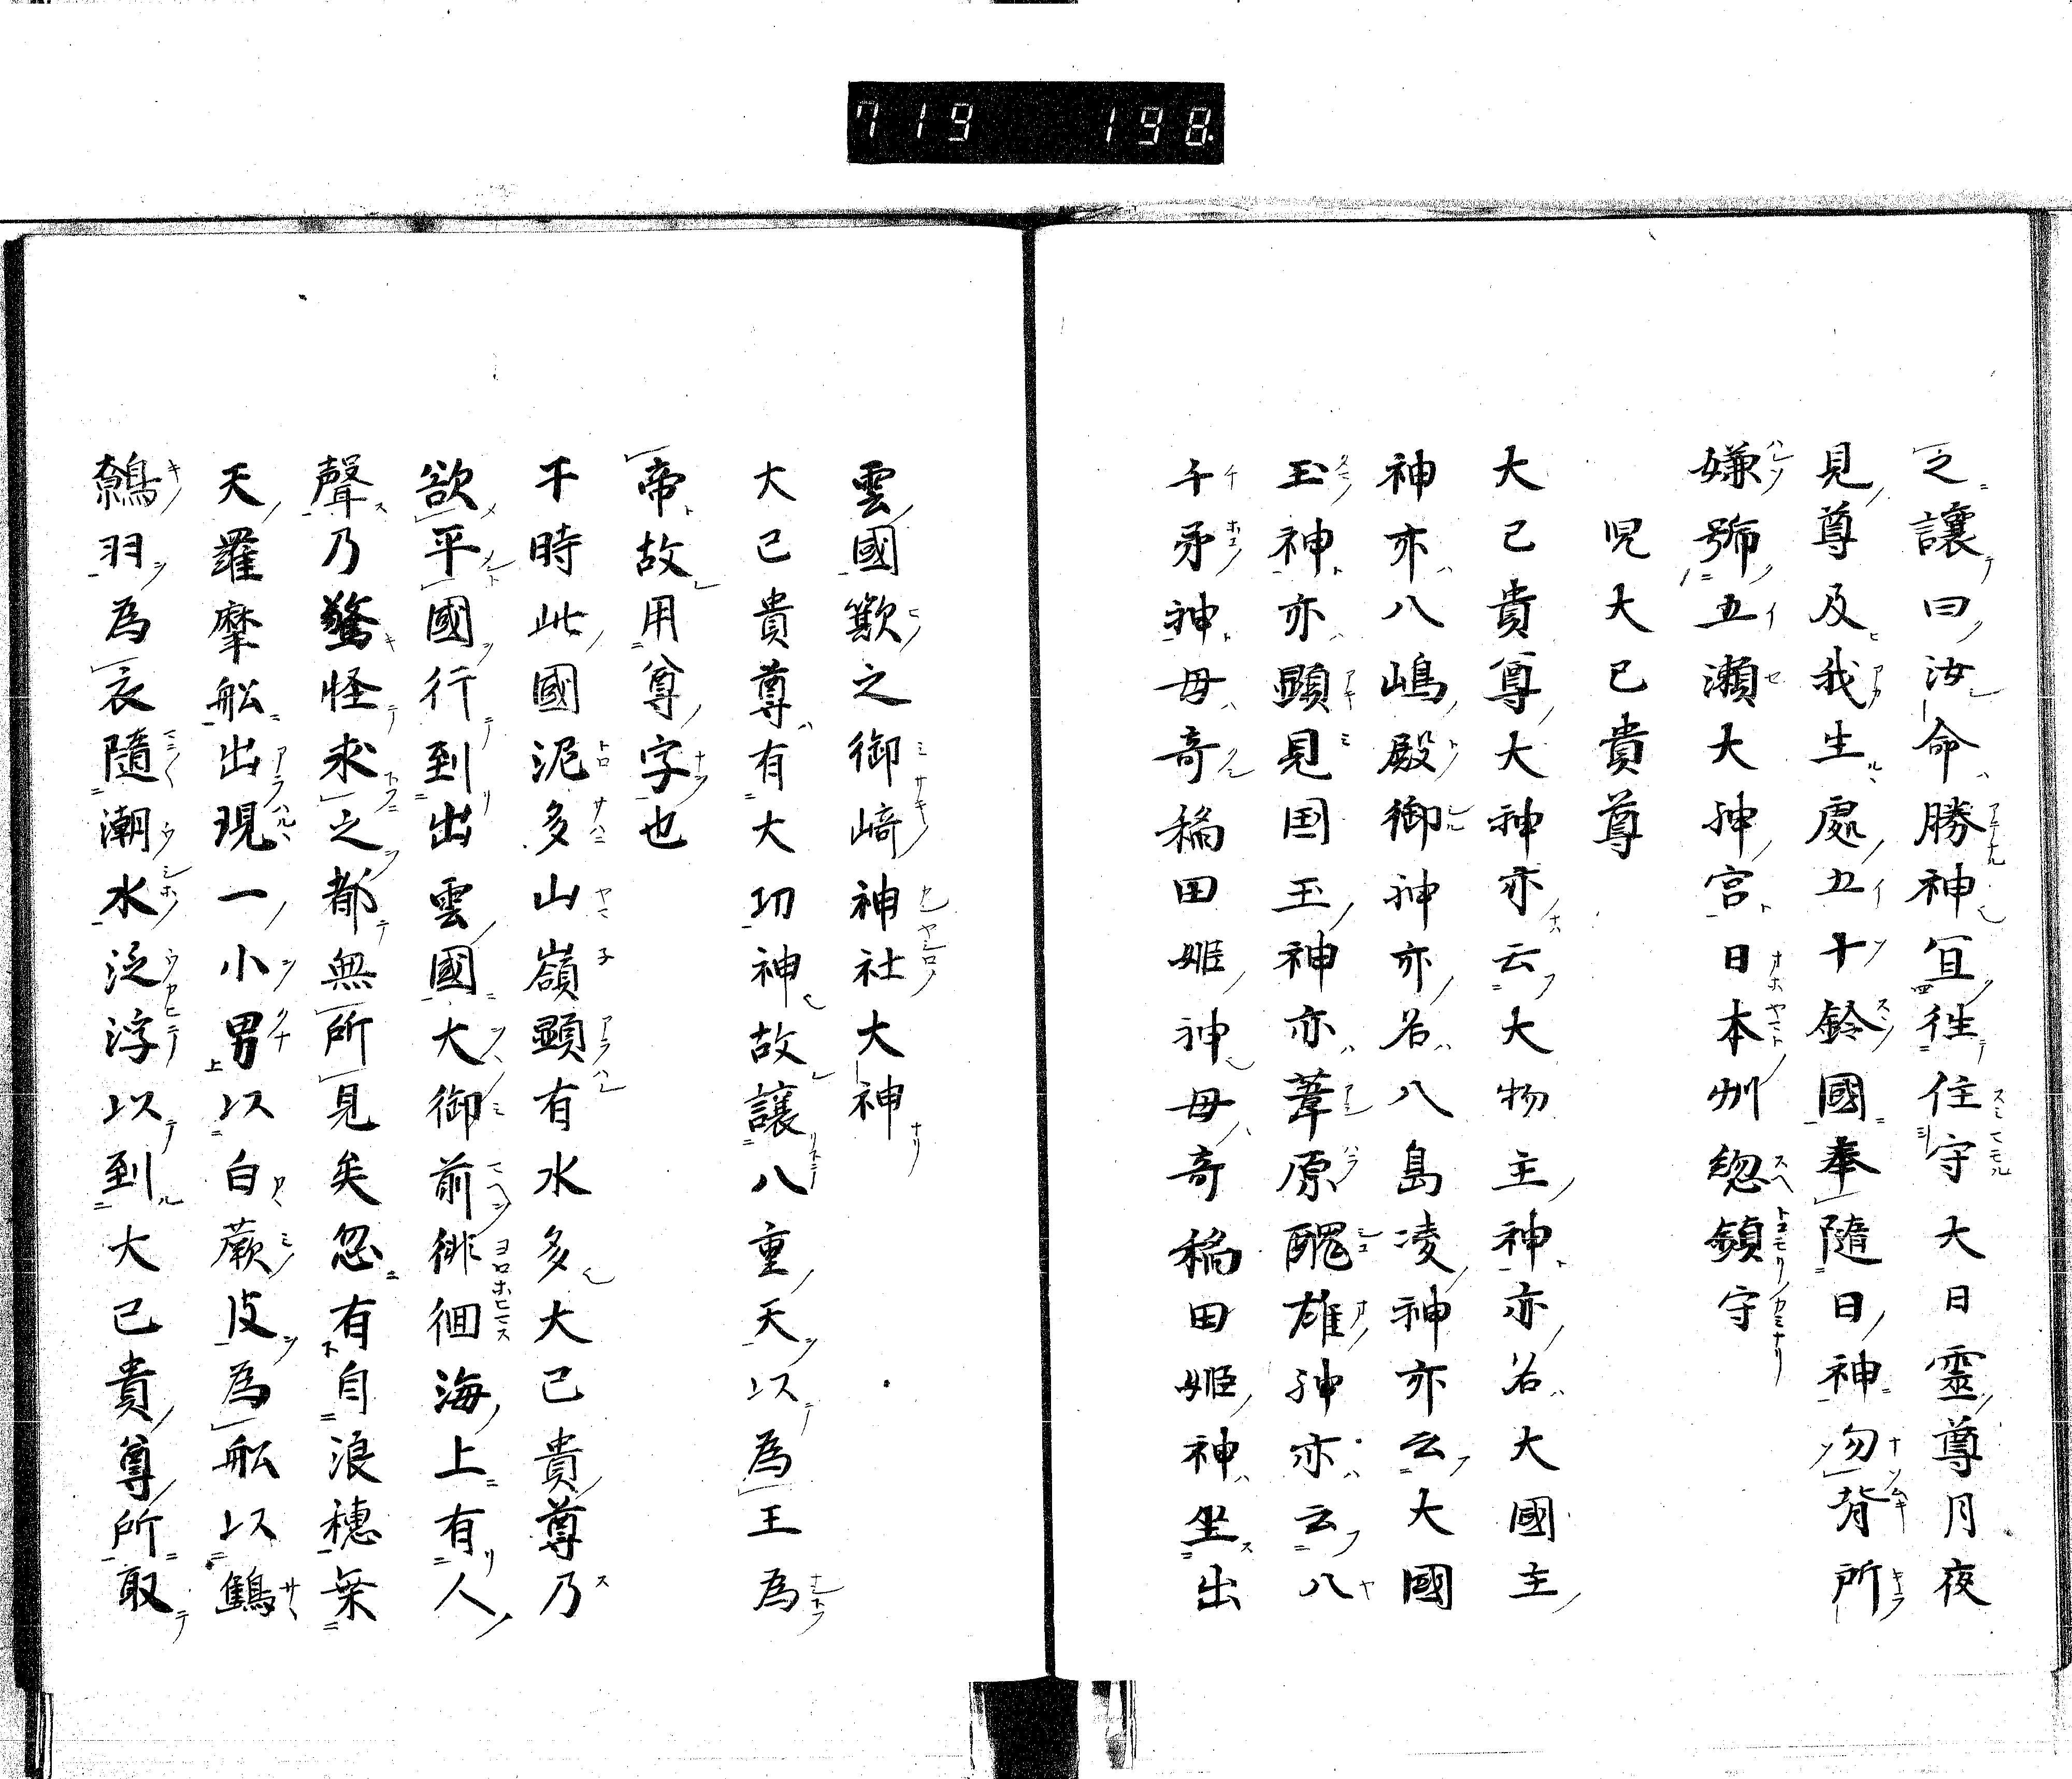 719 198
之讓曰汝命勝神冝徃住守大日靈尊月夜
見尊及我生處五十鈴國奉隨日神勿背所
嫌號五瀬大神宮日本州惣鎮守
児大已貴尊
大已貴尊大神亦云大物主神亦名大國主
神亦八嶋殿御神亦名八島凌神亦云大國
玉神亦顕見国玉神亦葦原醜雄神亦云八
千矛神母竒稲田姫神母竒稲田姫神坐出
雲國歎之御﨑神社大神
大已貴尊有大功神故讓八重天以為王為
帝故用尊字也
于時此國泥多山嶺顕有水多大已貴尊乃
欲平國行到出雲國大御前徘徊海上有人
聲乃驚怪求之都無所見矣忽有自浪穂乗
天羅摩舩出現一小男以白蕨皮為舩以鷦
鷯羽為衣隨潮水泛浮以到大已貴尊所取